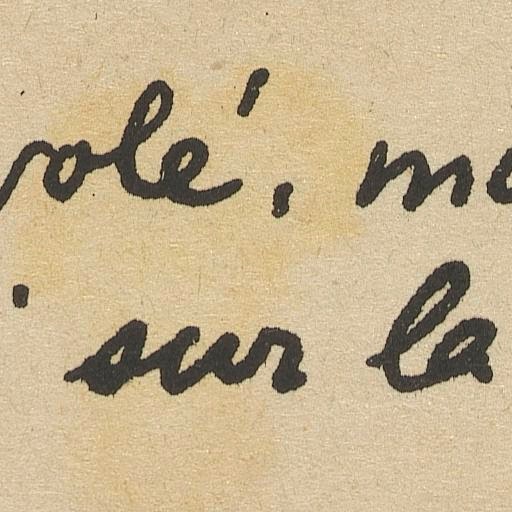 volé, mo
sur la